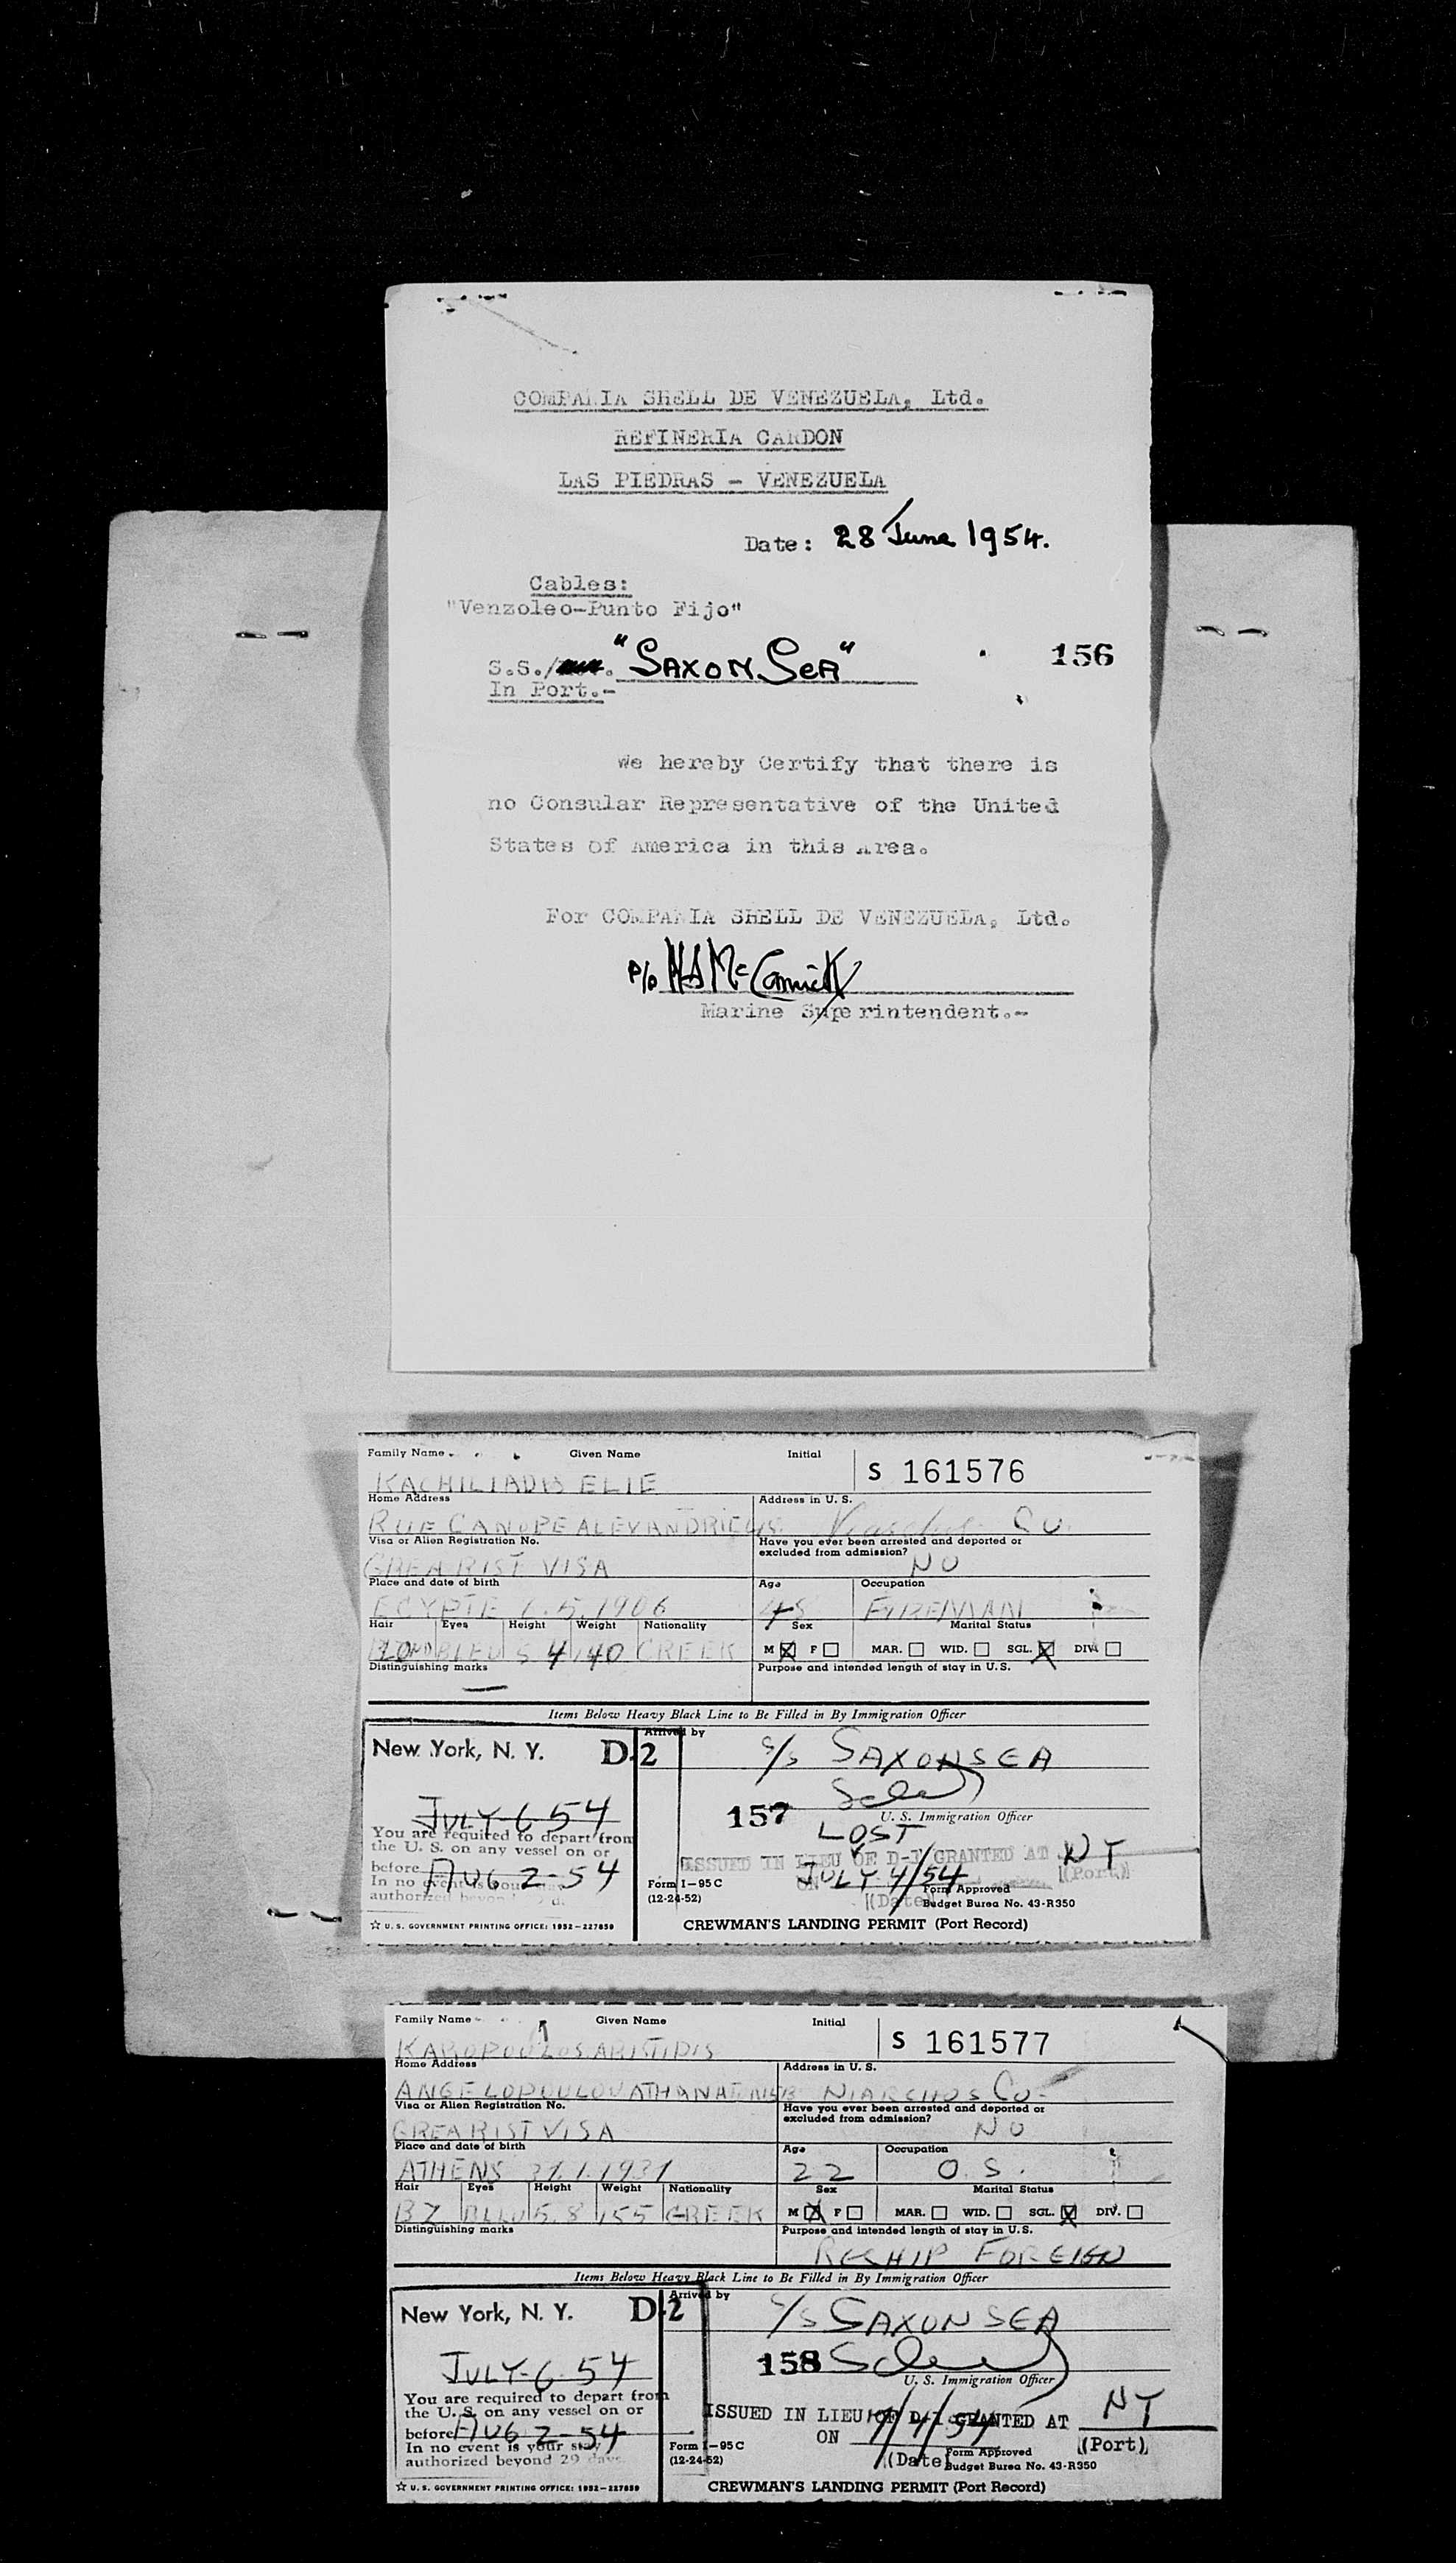 COMPANIA SHELL DE VENEZUELA, Ltd.
REFINERIA CARDON
LAS PIEDRAS - VENEZUELA
Date: 28 June 1954.
Cables:
"Venzoleo-Punto Fijo"
S.S./ "SAXON SEA"
156
In Port.-
We hereby Certify that there is
no Consular Representative of the United
States of America in this Area.
For COMPANIA SHELL DE VENEZUELA, Ltd.
P/o McCormick
Marine Superintendent.-
Family Name Given Name Initial
S 161576
KACHILIADIS ELIE
Home Address Address in U. S.
RUE CANOPE ALEXANDRIE Co.
Visa or Alien Registration No. Have you ever been arrested and deported or
excluded from admission?
CREA RIST VISA NO
Place and date of birth Age Occupation
EGYPTE 1.5.1906 48 FIREMAN
Hair Eyes Height Weight Nationality Sex Marital Status
BLOND BLEU 5 4 140 GREEK M F MAR. WID. SGL. DIV.
Distinguishing marks Purpose and intended length of stay in U. S.
Items Below Heavy Black Line to Be Filled in By Immigration Officer
Arrived by
New York, N. Y. D-2 S/S SAXON SEA
JULY-6-54
157
U. S. Immigration Officer
LOST
You are required to depart from
the U. S. on any vessel on or
before AUG 2-54
In no event is your
authorized beyond
ISSUED IN LIEU OF D-1 GRANTED AT NY
ON JULY 4/54 (Port)
(Date)
Form I-95 C
(12-24-52)
Form Approved
Budget Burea No. 43-R350
☆ U. S. GOVERNMENT PRINTING OFFICE: 1952-227859
CREWMAN'S LANDING PERMIT (Port Record)
Family Name Given Name Initial
S 161577
KAROPOULOS ARISTIDIS
Home Address Address in U. S.
ANGELOPOULOU ATHANAE NIARCHOS Co-
Visa or Alien Registration No. Have you ever been arrested and deported or
excluded from admission?
CREA RIST VISA NO
Place and date of birth Age Occupation
ATHENS 31.1.1931 22 O.S.
Hair Eyes Height Weight Nationality Sex Marital Status
BZ BLLU 5.8 155 GREEK M F MAR. WID. SGL. DIV.
Distinguishing marks Purpose and intended length of stay in U. S.
RESHIP FOREIGN
Items Below Heavy Black Line to Be Filled in By Immigration Officer
Arrived by
New York, N. Y. D-2 S/S SAXON SEA
JULY-6-54
158
U. S. Immigration Officer
You are required to depart from
the U. S. on any vessel on or
before AUG 2-54
In no event is your stay
authorized beyond 29 days
ISSUED IN LIEU OF D-1 GRANTED AT NY
ON 7/4/54 (Port)
(Date)
Form I-95 C
(12-24-52)
Form Approved
Budget Burea No. 43-R350
☆ U. S. GOVERNMENT PRINTING OFFICE: 1952-227859
CREWMAN'S LANDING PERMIT (Port Record)